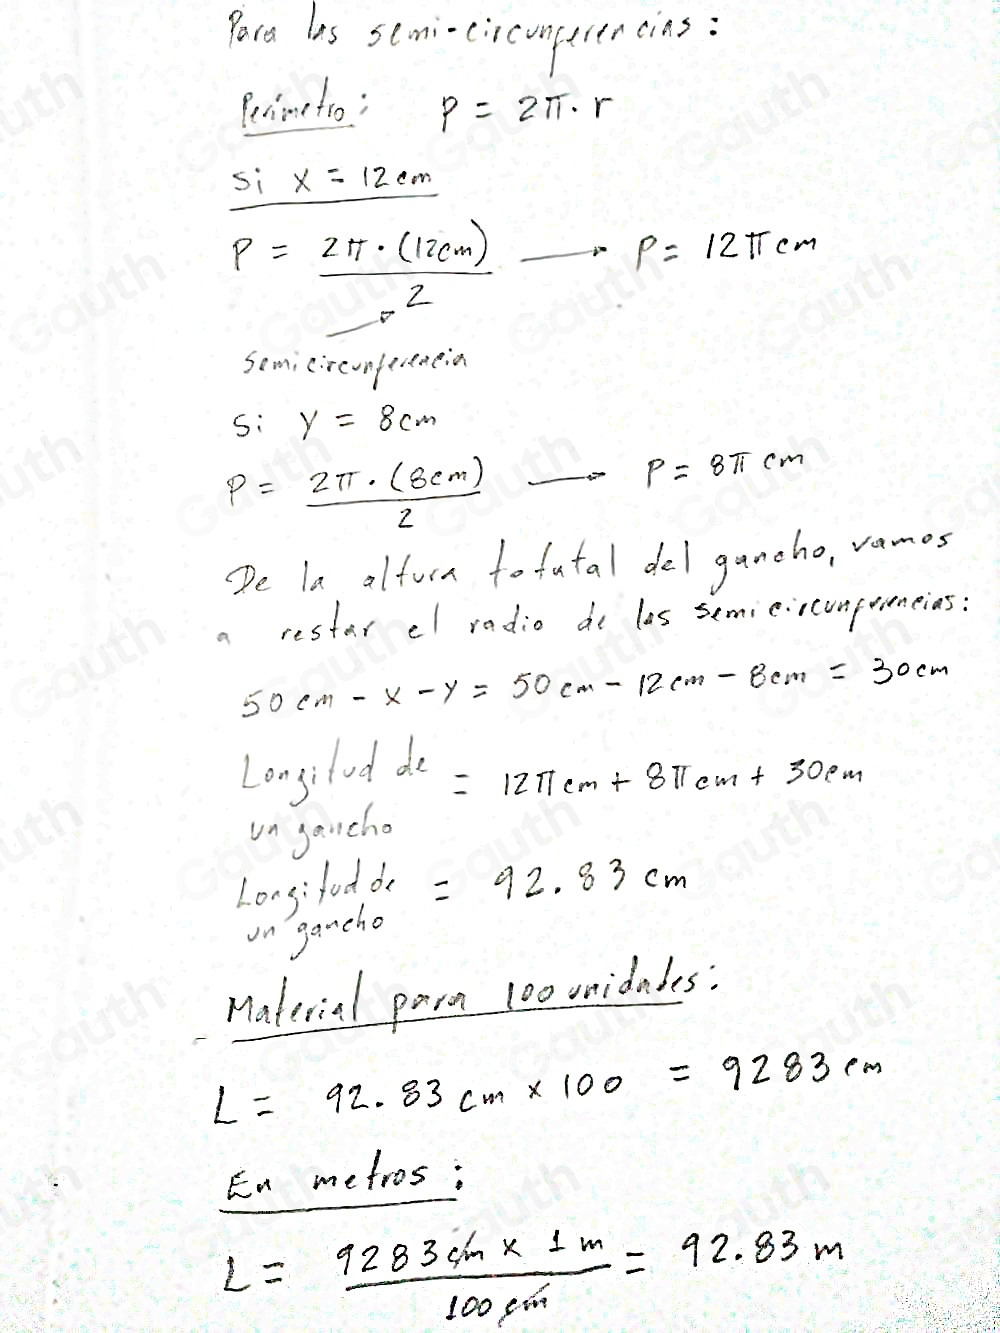 Para las semi-circunferencias:
Perímetro: P = 2π · r
Si x = 12cm
P = 2π · (12cm) / 2 → P = 12π cm
Semicircunferencia
Si y = 8cm
P = 2π · (8cm) / 2 → P = 8π cm
De la altura tofutal del gancho, vamos
a restar el radio de las semicircunferencias:
50cm - x - y = 50cm - 12cm - 8cm = 30cm
Longitud de un gancho = 12πcm + 8πcm + 30cm
Longitud de un gancho = 92.83 cm
Material para 100 unidades:
L = 92.83 cm x 100 = 9283 cm
En metros:
L = 9283cm x 1m / 100cm = 92.83 m
Gauth